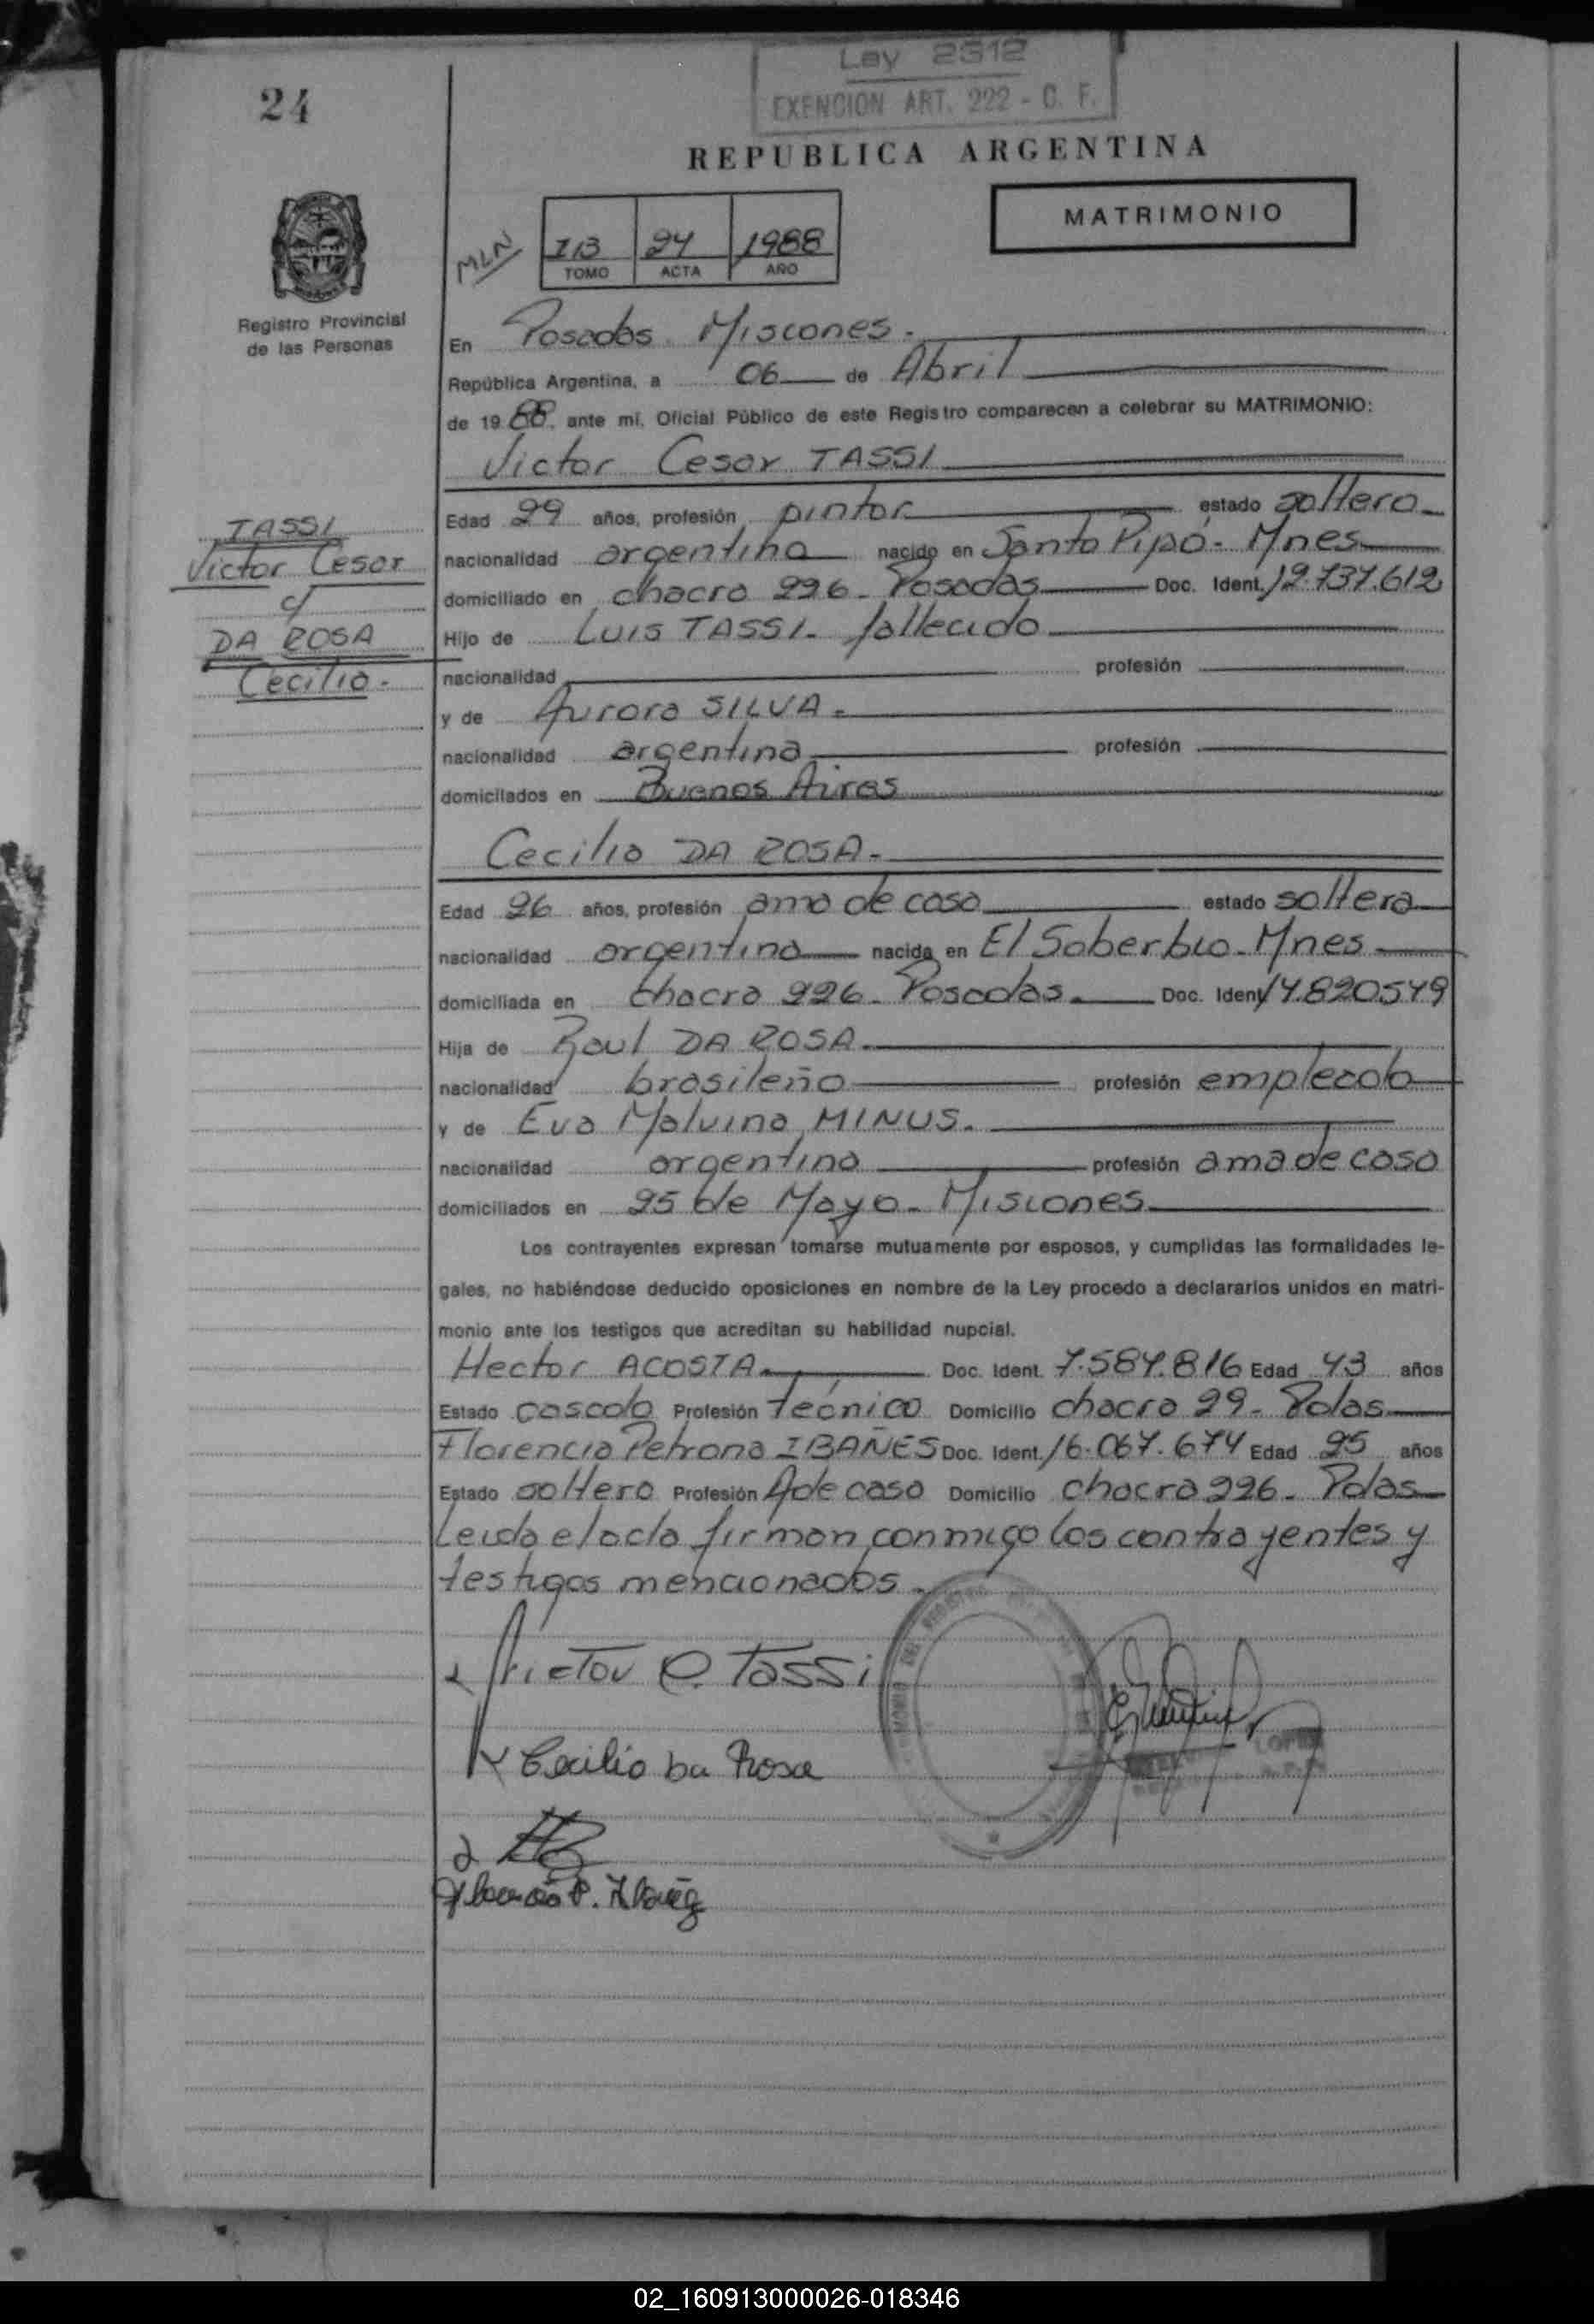 Ley 2312
EXENCION ART. 222 - C. F.
24
REPUBLICA ARGENTINA
MATRIMONIO
MLN
IB 24 1988
TOMO ACTA AÑO
Registro Provincial
de las Personas
En Posadas Misiones.
República Argentina, a 06 de Abril
de 1988. ante mí, Oficial Público de este Registro comparecen a celebrar su MATRIMONIO:
Victor Cesar TASSI
TASSI
Victor Cesar
c/
DA ROSA
Cecilia.
Edad 29 años, profesión pintor estado soltero
nacionalidad argentina nacido en Santo Pipó - Mnes
domiciliado en chacra 226 - Posadas Doc. Ident. 12.737.612
Hijo de LUIS TASSI - fallecido
nacionalidad profesión
y de Aurora SILVA -
nacionalidad argentina profesión
domicilados en Buenos Aires
Cecilia DA ROSA -
Edad 26 años, profesión ama de casa estado soltera
nacionalidad argentina nacida en El Soberbio - Mnes
domiciliada en chacra 226 - Posadas Doc. Ident 14.820549
Hija de Raul DA ROSA
nacionalidad brasileño profesión empleado
y de Eva Malvina MINUS.
nacionalidad argentina profesión ama de casa
domiciliados en 25 de Mayo - Misiones
Los contrayentes expresan tomarse mutuamente por esposos, y cumplidas las formalidades le-
gales, no habiéndose deducido oposiciones en nombre de la Ley procedo a declararlos unidos en matri-
monio ante los testigos que acreditan su habilidad nupcial.
Hector ACOSTA Doc. Ident. 7.584.816 Edad 43 años
Estado casado Profesión técnico Domicilio chacra 29 - Pdas
Florencia Petrona IBAÑES Doc. Ident. 16.067.674 Edad 25 años
Estado soltera Profesión A de casa Domicilio chacra 226 - Pdas
Leida el acta firman conmigo los contrayentes y
testigos mencionados.
Victor C. Tassi
Cecilia Da Rosa
02_160913000026-018346